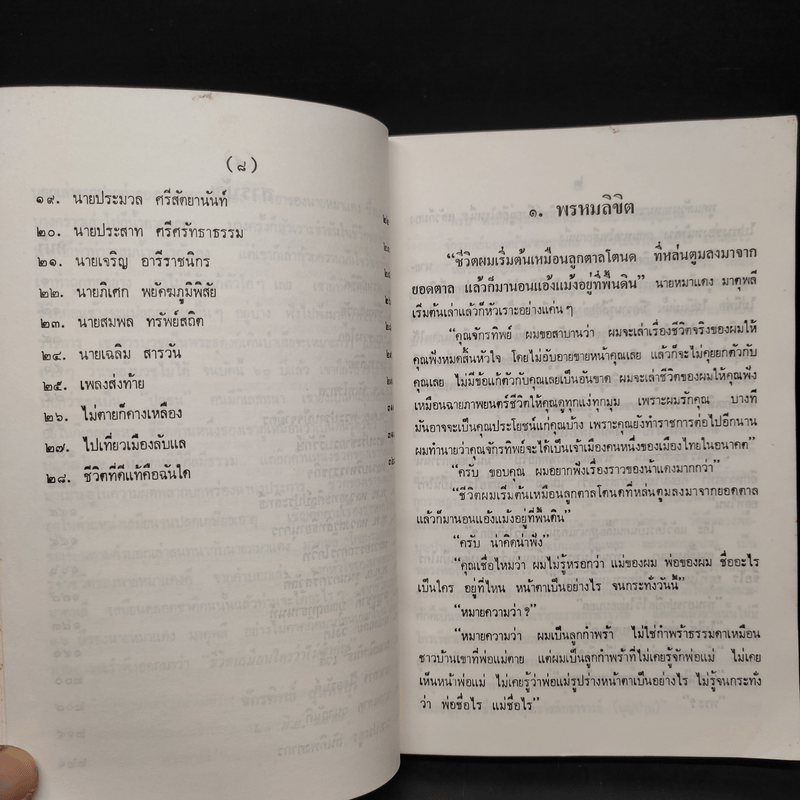 (๘)
๑๙. นายประมวล ศรีสัตยานันท์
๒๐. นายประสาท ศรีศรัทธาธรรม
๒๑. นายเจริญ อารีราชนิกร
๒๒. นายภิเศก พยัคฆภูมิพิสัย
๒๓. นายสมพล ทรัพย์สถิต
๒๔. นายเฉลิม สารวัน
๒๕. เพลงส่งท้าย
๒๖. ไม่ตายก็คางเหลือง
๒๗. ไปเที่ยวเมืองลับแล
๒๘. ชีวิตที่ดีแท้คือฉันใด
๑. พรหมลิขิต
“ชีวิตผมเริ่มต้นเหมือนลูกตาลโตนด ที่หล่นตูมลงมาจาก
ยอดตาล แล้วก็มานอนแอ้งแม้งอยู่ที่พื้นดิน” นายหมาแดง มาตุพลี
เริ่มต้นเล่าแล้วก็หัวเราะอย่างแค่น ๆ
“คุณจักรทิพย์ ผมขอสาบานว่า ผมจะเล่าเรื่องชีวิตจริงของผมให้
คุณฟังหมดสิ้นหัวใจ โดยไม่อับอายขายหน้าคุณเลย แล้วก็จะไม่คุยยกตัวกับ
คุณเลย ไม่มีข้อแก้ตัวกับคุณเลยเป็นอันขาด ผมจะเล่าชีวิตของผมให้คุณฟัง
เหมือนฉายภาพยนตร์ชีวิตให้คุณดูทุกแง่ทุกมุม เพราะผมรักคุณ บางที
มันอาจจะเป็นคุณประโยชน์แก่คุณบ้าง เพราะคุณยังทำราชการต่อไปอีกนาน
ผมทำนายว่าคุณจักรทิพย์จะได้เป็นเจ้าเมืองคนหนึ่งของเมืองไทยในอนาคต”
“ครับ ขอบคุณ ผมอยากฟังเรื่องราวของน้าแดงมากกว่า”
“ชีวิตผมเริ่มต้นเหมือนลูกตาลโตนดที่หล่นตูมลงมาจากยอดตาล
แล้วก็มานอนแอ้งแม้งอยู่ที่พื้นดิน”
“ครับ น่าคิดน่าฟัง”
“คุณเชื่อไหมว่า ผมไม่รู้หรอกว่า แม่ของผม พ่อของผม ชื่ออะไร
เป็นใคร อยู่ที่ไหน หน้าตาเป็นอย่างไร จนกระทั่งวันนี้”
“หมายความว่า ?”
“หมายความว่า ผมเป็นลูกกำพร้า ไม่ใช่กำพร้าธรรมดาเหมือน
ชาวบ้านเขาที่พ่อแม่ตาย แต่ผมเป็นลูกกำพร้าที่ไม่เคยรู้จักพ่อแม่ ไม่เคย
เห็นหน้าพ่อแม่ ไม่เคยรู้ว่าพ่อแม่รูปร่างหน้าตาเป็นอย่างไร ไม่รู้จนกระทั่ง
ว่า พ่อชื่อไร แม่ชื่อไร”